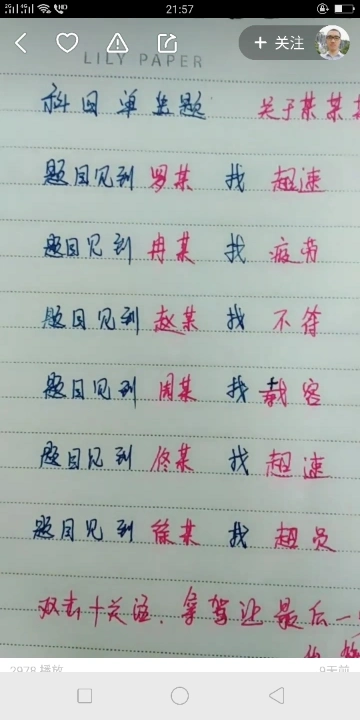 21:57
+ 关注
LILY PAPER
科目单选题 关于某某
题目见到 罗某 找 超速
题目见到 冉某 找 疲劳
题目见到 赵某 找 不符
题目见到 周某 找 载客
题目见到 佟某 找 超速
题目见到 徐某 找 超员
双击十关注. 拿驾证最后一
2978 播放 9天前